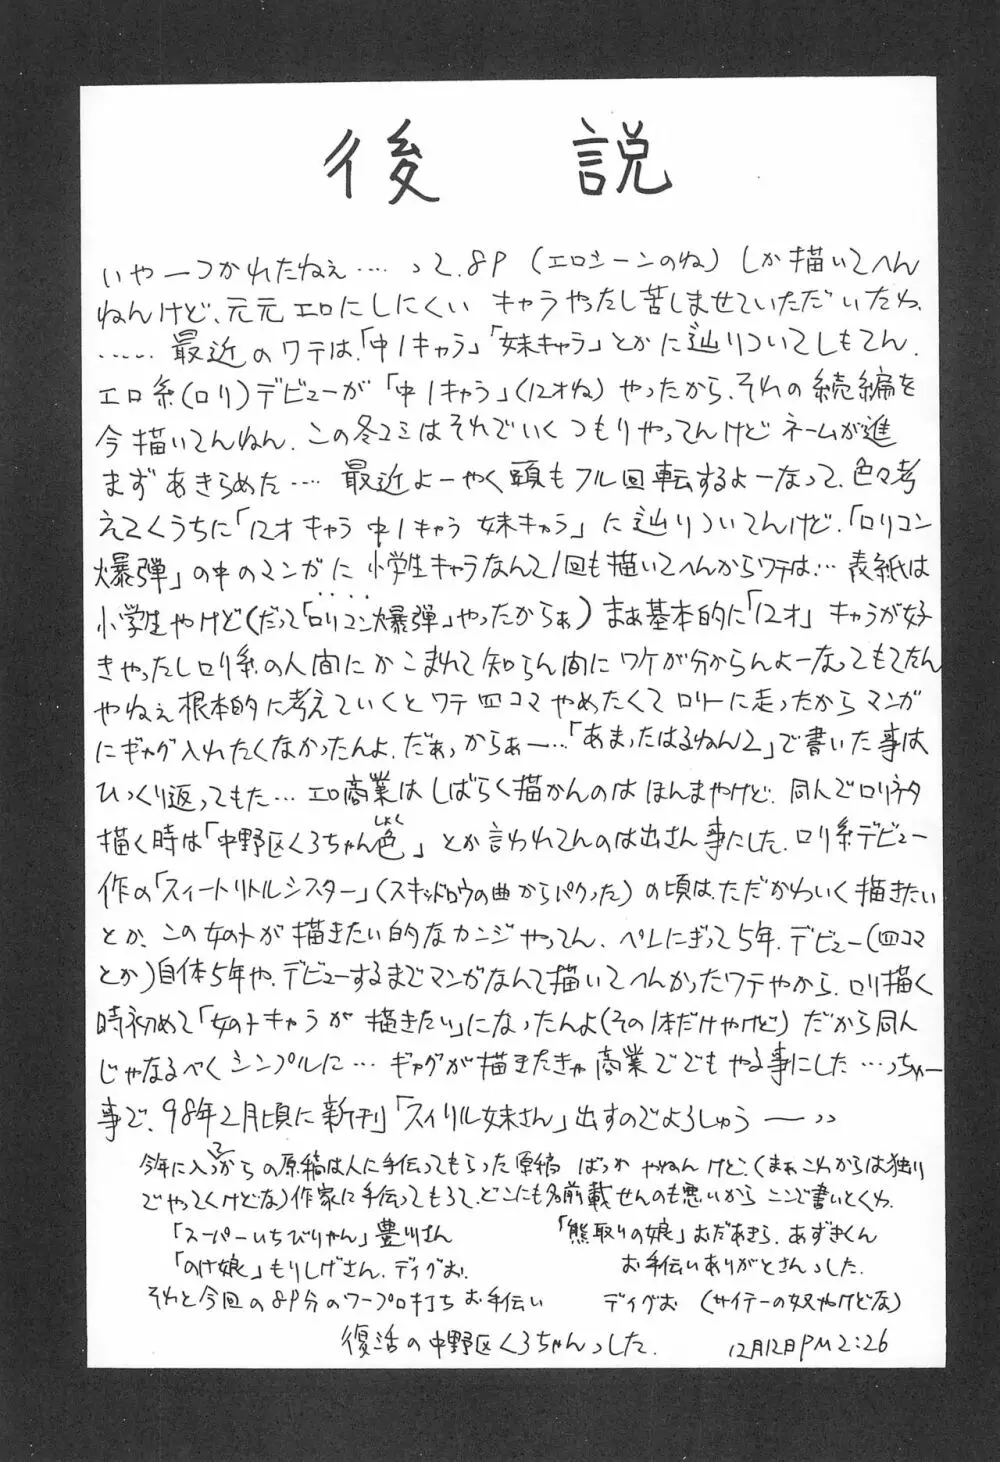 後説
いやーつかれたねぇ‥‥って.8P(エロシーンのね)しか描いてへん
ねんけど、元元エロにしにくいキャラやったし苦しませていただいたわ.
‥‥‥最近のワテは.「中1キャラ」「妹キャラ」とかに辿りついてしもてん.
エロ系(ロリ)デビューが「中1キャラ」(12才ね)やったから.それの続編を
今描いてんねん.この冬コミはそれでいくつもりやってんけどネームが進
まずあきらめた‥‥最近よーやく頭もフル回転するよーなって.色々考
えてくうちに「12才キャラ中1キャラ妹キャラ」に辿りついてんけど.「ロリコン
爆弾」の中のマンガに小学生キャラなんて1回も描いてへんからワテは‥‥表紙は
小学生やけど(だって「ロリコン爆弾」やったからぁ)まぁ基本的に「12才」キャラが好
きやったしロリ系の人間にかこまれて知らん間にワケが分からんよーなってもてたん
やねぇ根本的に考えていくとワテ四コマやめたくてロリーに走ったからマンガ
にギャグ入れたくなかったんよ.だぁっからぁー‥‥「あまったはるねん2」で書いた事は
ひっくり返ってもた‥‥エロ商業はしばらく描かんのはほんまやけど.同人でロリネタ
描く時は「中野区くろちゃん色しょく」とか言われてんのは出さん事にした.ロリ系デビュー
作の「スィートリトルシスター」(スキッドロウの曲からパクった)の頃は.ただかわいく描きたい
とか、この女のトが描きたい的なカンジやってん.ペンにぎって5年.デビュー(四コマ
とか)自体5年や.デビューするまでマンガなんて描いてへんかったワテやから.ロリ描く
時初めて「女のトキャラが描きたい」になったんよ(その1本だけやけど)だから同人
じゃなるべくシンプルに‥‥ギャグが描きたきゃ商業ででもやる事にした‥‥っちゅー
事で、98年2月頃に新刊「スイリル妹さん」出すのでよろしゅうー
今年に入ってからの原稿は人に手伝ってもらった原稿ばっかやねんけど.(まぁこれからは独り
でやってくけどな)作家に手伝ってもろて.どこにも名前載せんのも悪いからここで書いとくわ.
「スーパーいちびりやん」豊川さん 「熊取りの娘」むだあきら.あずきくん
「のけ娘」もりしげさん.ディグお. お手伝いありがとさんっした.
それと今回の8P分のワープロ打ちお手伝い ディグお(サイテーの奴やけどな)
復活の中野区くろちゃんっした. 12月12日PM2:26